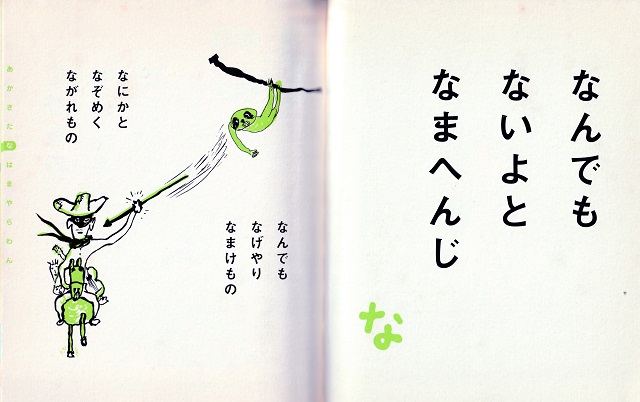 なんでも
ないよと
なまへんじ
な
なんでも
なげやり
なまけもの
なにかと
なぞめく
ながれもの
あかさたなはまやらわん